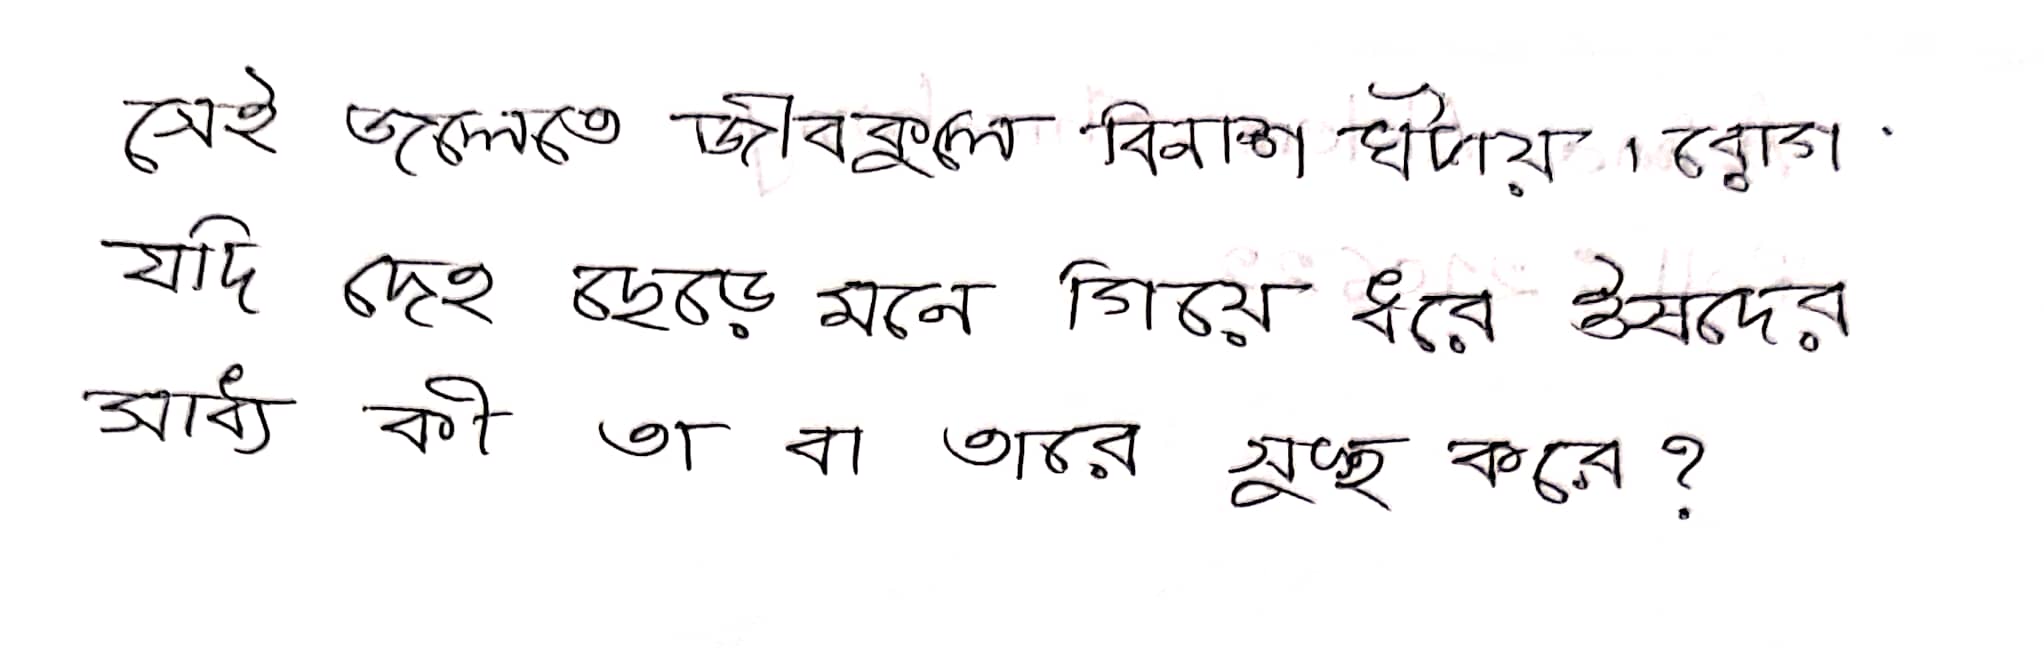 সেই জলেতে জীবকুলে বিনাশ ঘটায়। রোগ
যদি দেহ ছেড়ে মনে গিয়ে ধরে ঔষদের
সাধ্য কী তা বা তারে সুস্থ করে?